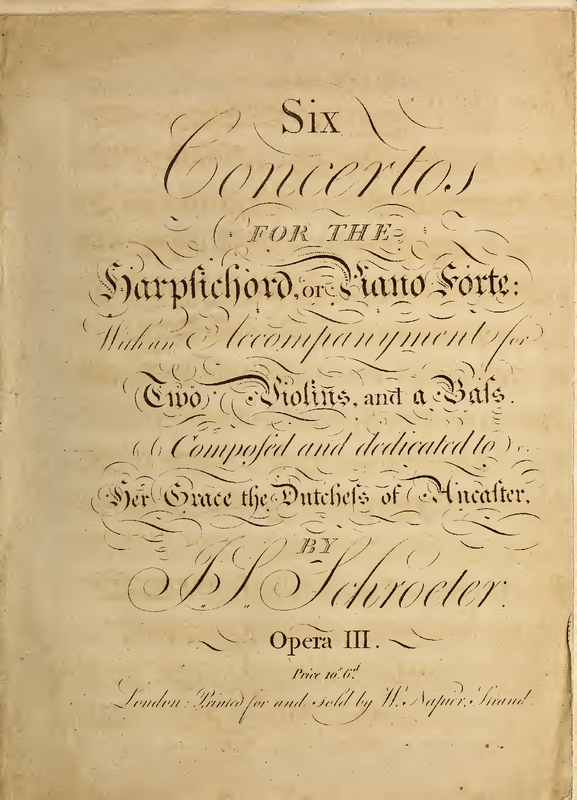 Six
Concertos
FOR THE
Harpſichord, or Piano Forte:
With an Accompanyment for
Two Violins, and a Baſs.
Compoſed and dedicated to
Her Grace the Dutcheſs of Ancaſter,
BY
J. S. Schroeter.
Opera III.
Price 10.s 6.d
London: Printed for and sold by W. Napier, Strand